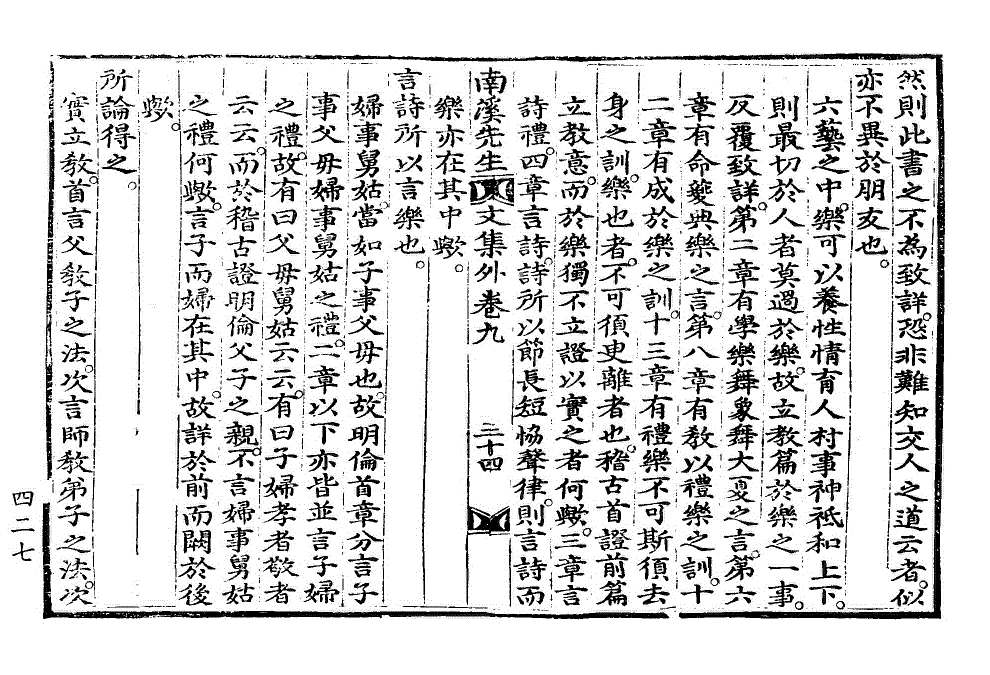 然則此書之不為致詳。恐非難知交人之道云者。似
亦不異於朋友也。
六藝之中。樂可以養性情育人材事神祇和上下。
則最切於人者莫過於樂。故立教篇於樂之一事。
反覆致詳。第二章有學樂舞象舞大夏之言。第六
章有命夔典樂之言。第八章有教以禮樂之訓。十
二章有成於樂之訓。十三章有禮樂不可斯須去
身之訓。樂也者。不可須臾離者也。稽古首證前篇
立教意。而於樂獨不立證以實之者何歟。三章言
詩禮。四章言詩。詩所以節長短恊聲律。則言詩而
南溪先生文集外卷九 三十四
樂亦在其中歟。
言詩所以言樂也。
婦事舅姑。當如子事父母也。故明倫首章分言子
事父母婦事舅姑之禮。二章以下亦皆並言子婦
之禮。故有曰父母舅姑云云。有曰子婦孝者敬者
云云。而於稽古證明倫父子之親。不言婦事舅姑
之禮何歟。言子而婦在其中。故詳於前而闕於後
歟。
所論得之。
實立教。首言父教子之法。次言師教弟子之法。次
四二七